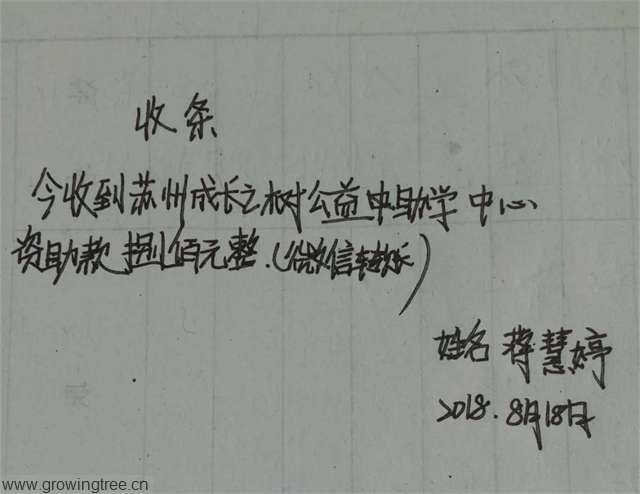 收条
今收到苏州成长之树公益中助学中心
资助款捌佰元整.(微信转账)
姓名 蒋慧婷
2018.8月18日
www.growingtree.cn